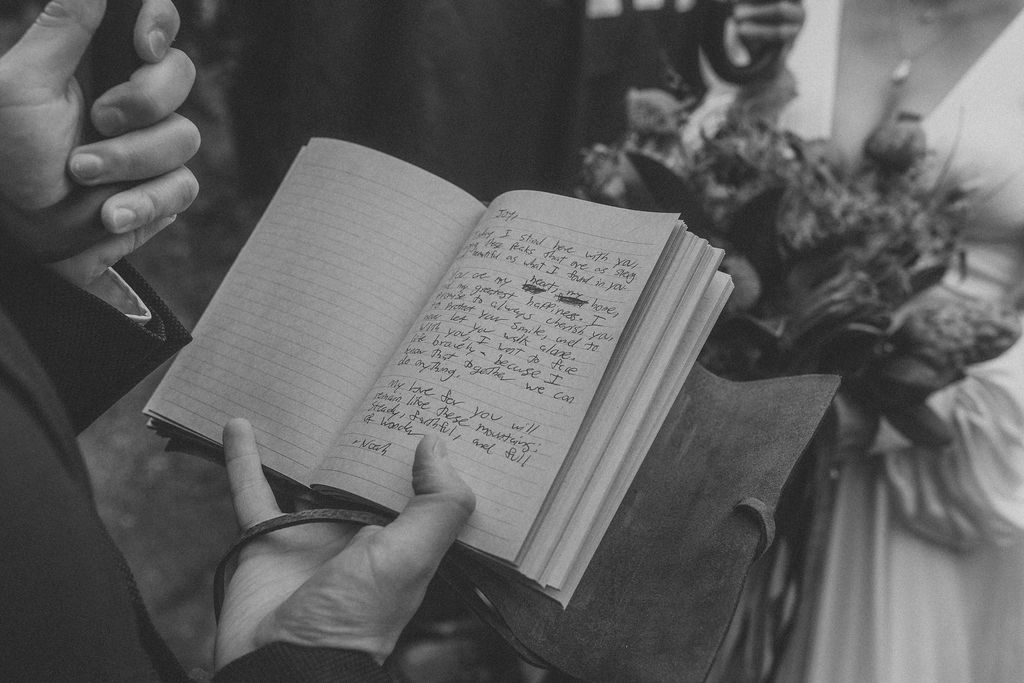 I stand here with you,
these peaks that are as
beautiful as what I found in you.
You are my heart, my home,
my greatest happiness. I
promise to always cherish you,
to protect your smile, and to
never let you walk alone.
With you, I want to face
life bravely - because I
know that together we can
do anything.
My love for you will
remain like these mountains:
steady, faithful, and full
of wonder
- Noah